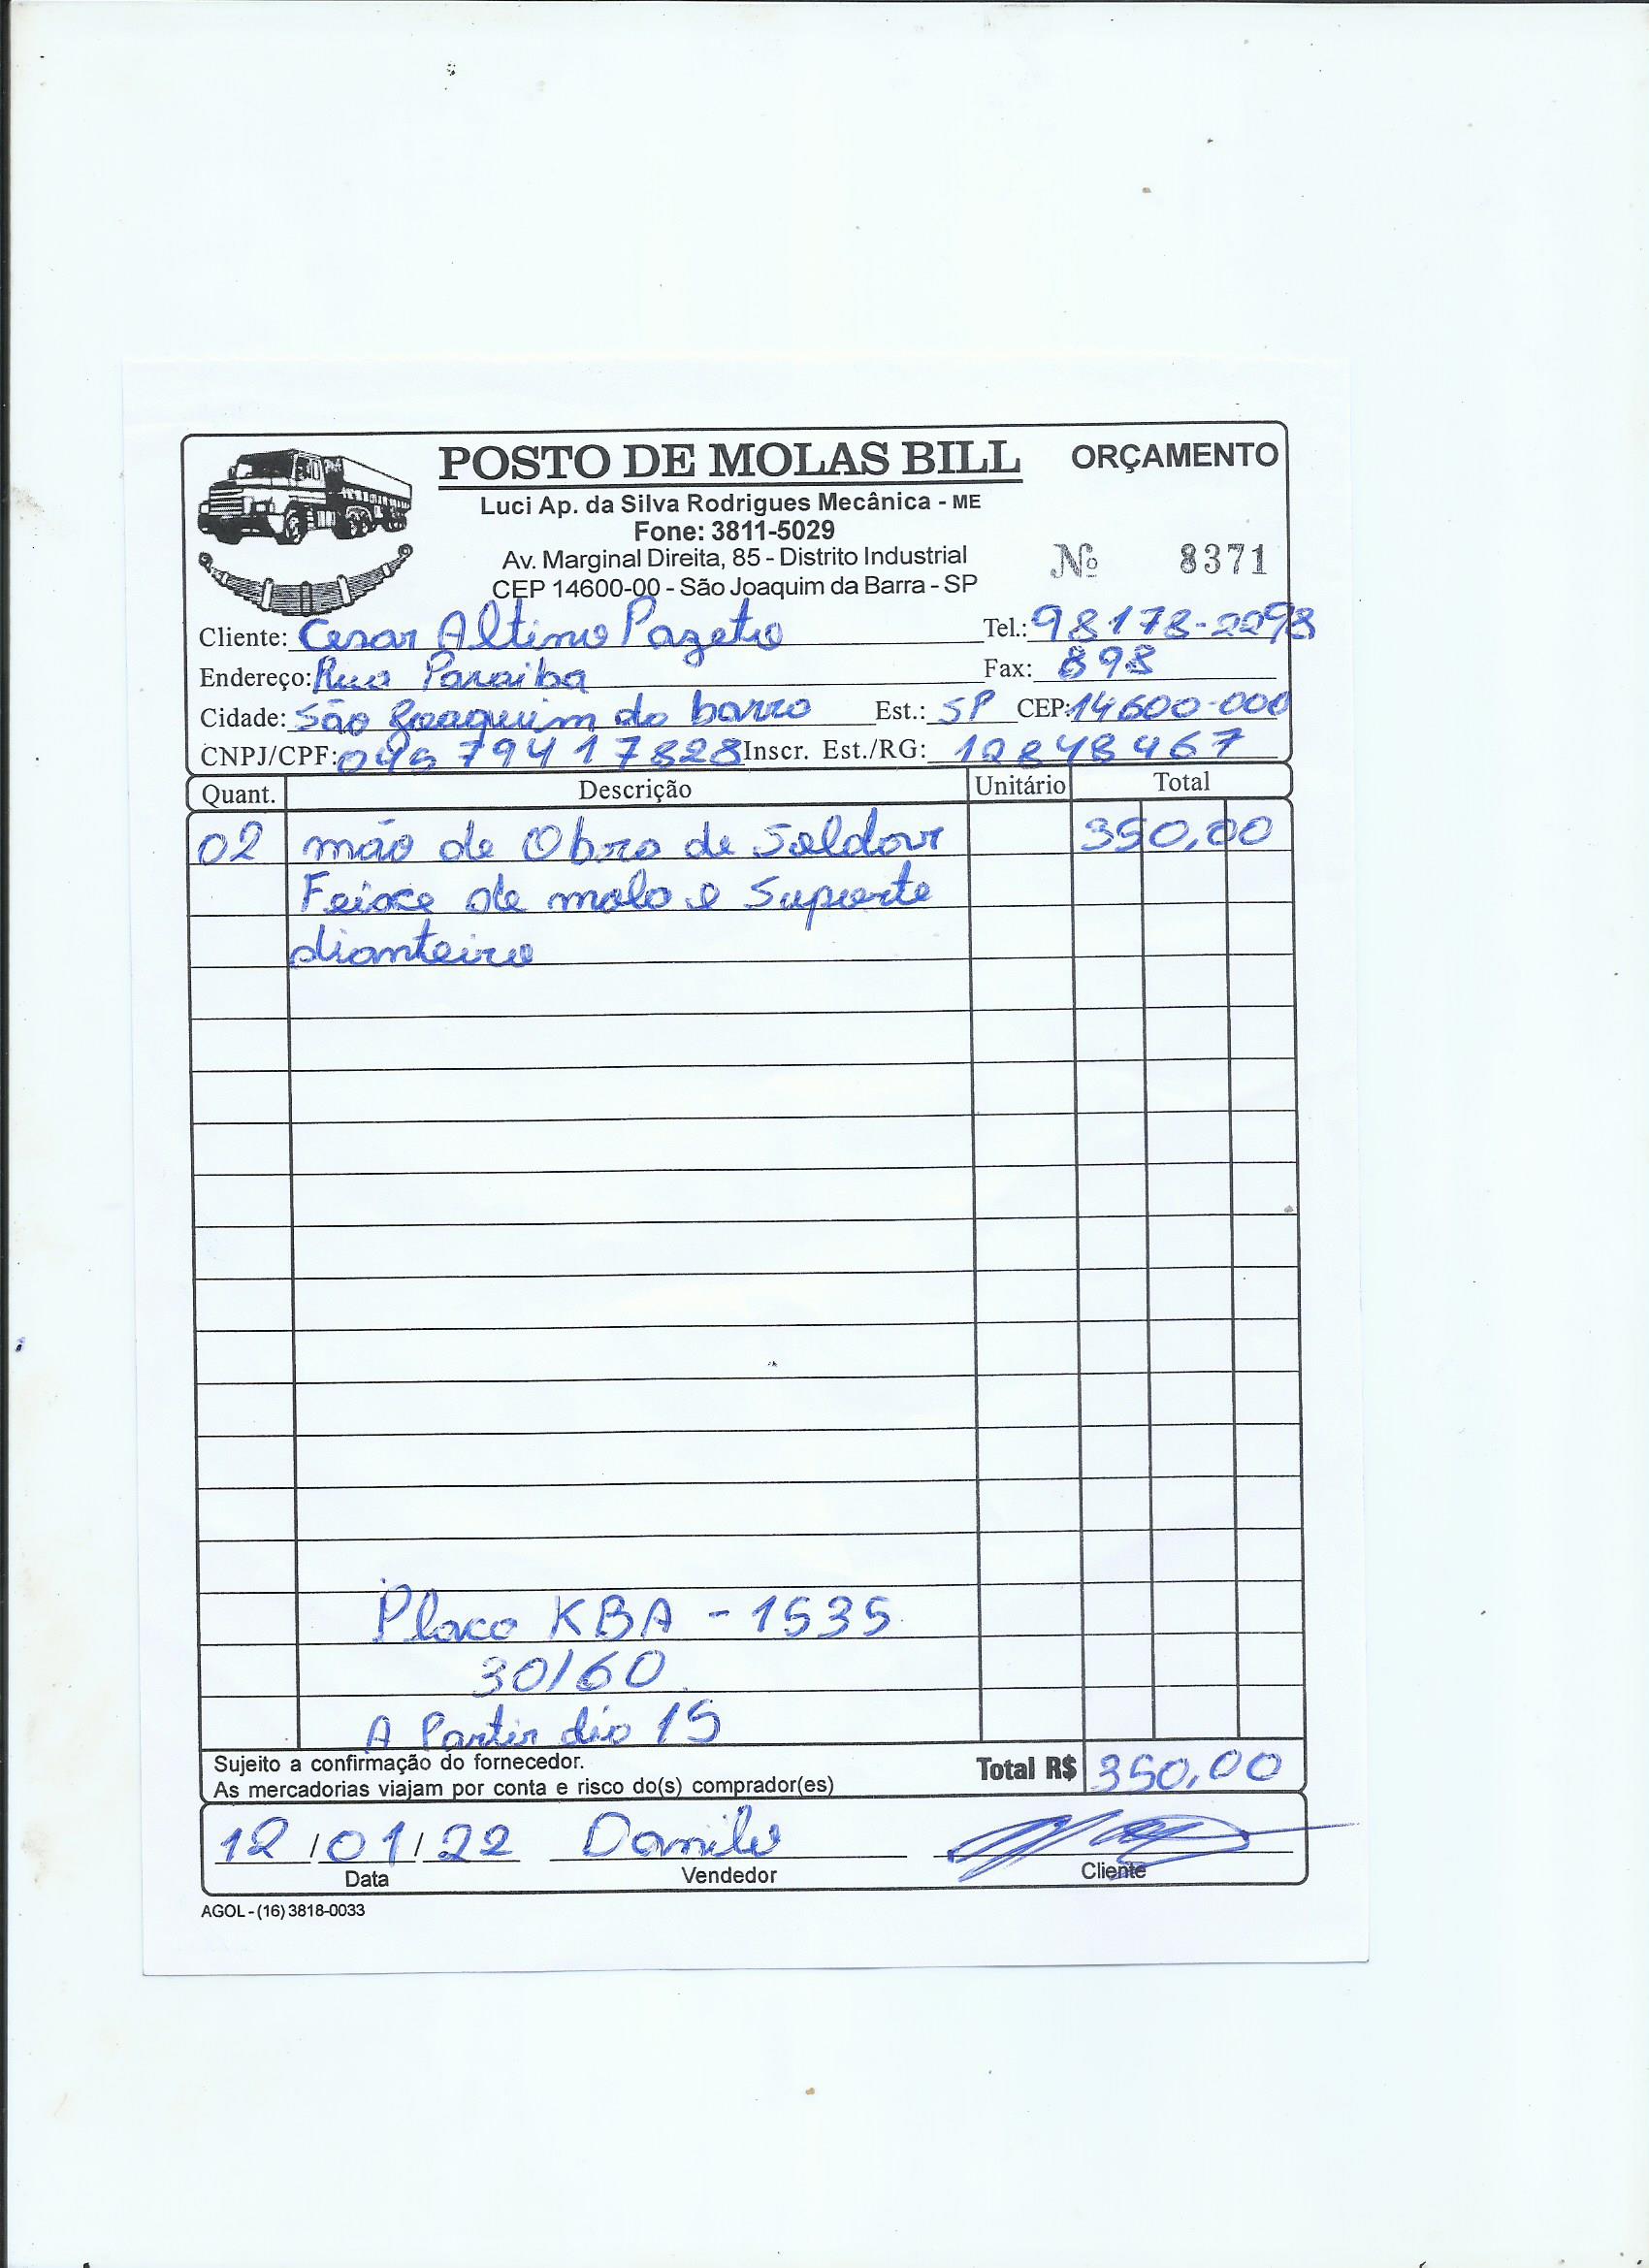 POSTO DE MOLAS BILL ORÇAMENTO
Luci Ap. da Silva Rodrigues Mecânica - ME
Fone: 3811-5029
Av. Marginal Direita, 85 - Distrito Industrial
Nº 8371
CEP 14600-00 - São Joaquim da Barra - SP
Cliente: Cesar Altimo Pazeto Tel.: 98178-2298
Endereço: Rua Paraiba Fax: 898
Cidade: São Joaquim da barra Est.: SP CEP: 14600-000
CNPJ/CPF: 04579417828 Inscr. Est./RG: 12848467
Quant. Descrição Unitário Total
02 mão de Obra de Soldar 350,00
Feixe de mola e Suporte
dianteiro
Placa KBA - 1535
30/60
A Partir dia 15
Sujeito a confirmação do fornecedor.
As mercadorias viajam por conta e risco do(s) comprador(es)
Total R$ 350,00
12/01/22 Danilo
Data Vendedor Cliente
AGOL - (16) 3818-0033